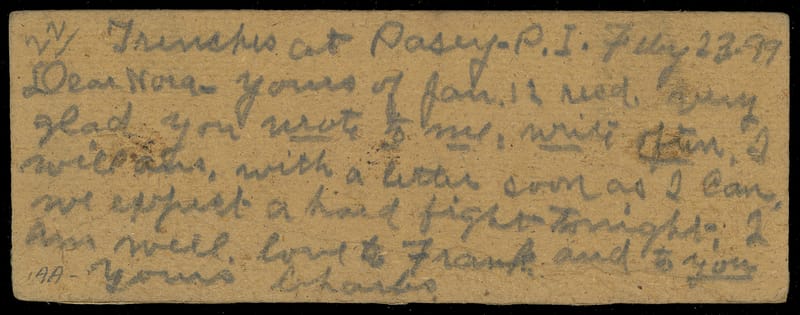 Trenches at Pasey-P.I. Feby 23-99
Dear Nora- Yours of Jan. 12 recd. very
glad you wrote to me, write often, I
will ans, with a letter soon as I can,
we expect a hard fight tonight, I
am well. love to Frank and to you
Yours Charles